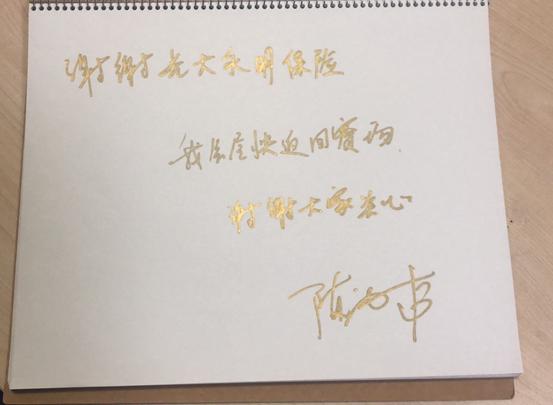 谢谢光大永明保险
我会尽快返回赛场.
谢谢大家关心
陈